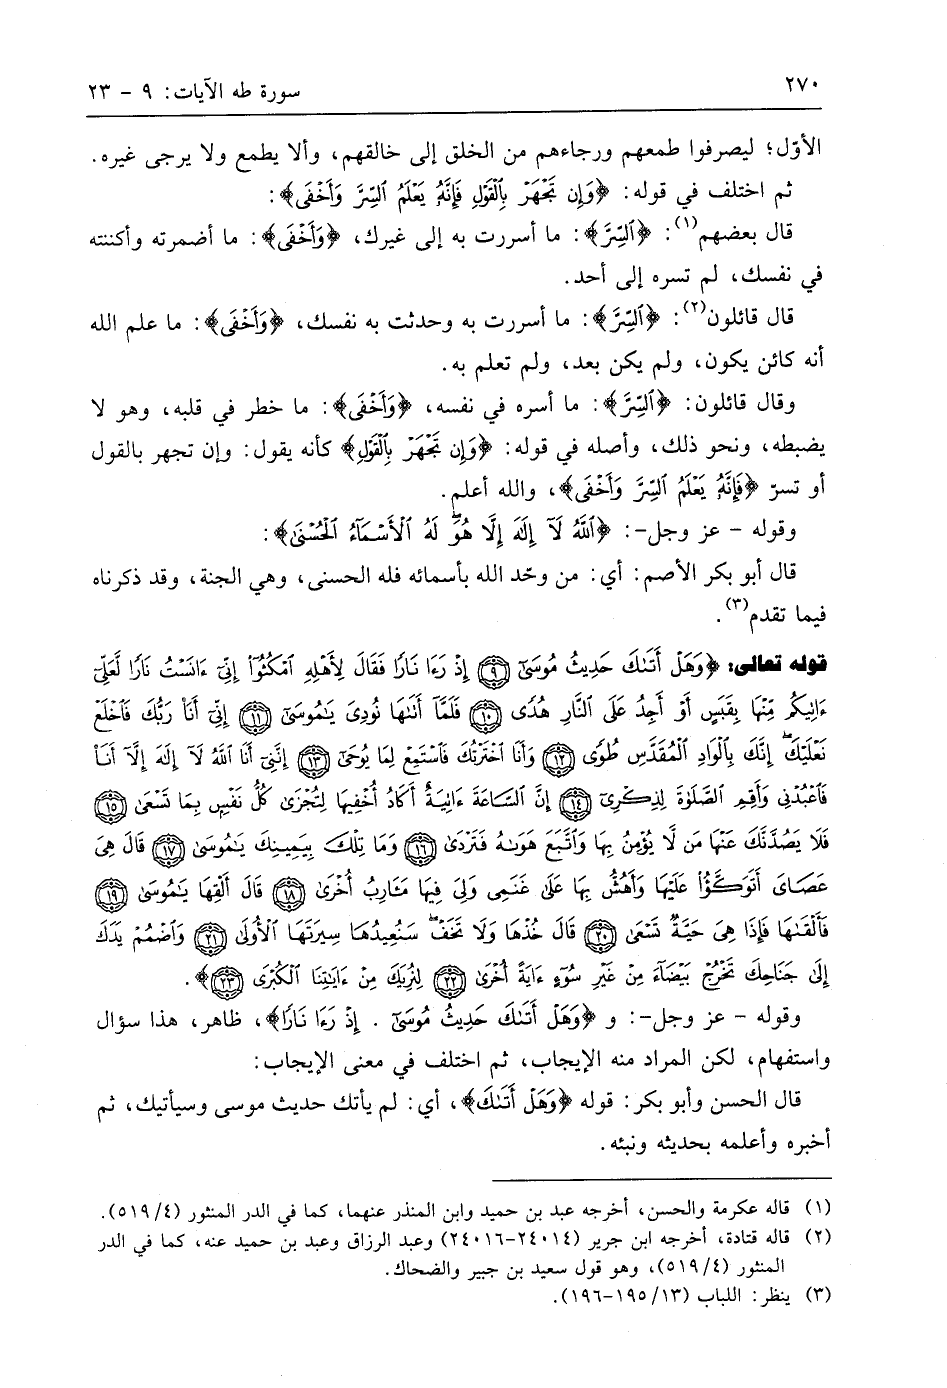 ٢٧٠
سورة طه الآيات: ٩ - ٢٣
الأوّل؛ ليصرفوا طمعهم ورجاءهم من الخلق إلى خالقهم، وألا يطمع ولا يرجى غيره.
ثم اختلف في قوله: ﴿وَإِن تَجْهَرْ بِٱلْقَوْلِ فَإِنَّهُۥ يَعْلَمُ ٱلسِّرَّ وَأَخْفَى﴾:
قال بعضهم(١): ﴿ٱلسِّرَّ﴾: ما أسررت به إلى غيرك، ﴿وَأَخْفَى﴾: ما أضمرته وأكننته
في نفسك، لم تسره إلى أحد.
قال قائلون(٢): ﴿ٱلسِّرَّ﴾: ما أسررت به وحدثت به نفسك، ﴿وَأَخْفَى﴾: ما علم الله
أنه كائن يكون، ولم يكن بعد، ولم تعلم به.
وقال قائلون: ﴿ٱلسِّرَّ﴾: ما أسره في نفسه، ﴿وَأَخْفَى﴾: ما خطر في قلبه، وهو لا
يضبطه، ونحو ذلك، وأصله في قوله: ﴿وَإِن تَجْهَرْ بِٱلْقَوْلِ﴾ كأنه يقول: وإن تجهر بالقول
أو تسرّ ﴿فَإِنَّهُۥ يَعْلَمُ ٱلسِّرَّ وَأَخْفَى﴾، والله أعلم.
وقوله - عز وجل-: ﴿ٱللَّهُ لَآ إِلَٰهَ إِلَّا هُوَۖ لَهُ ٱلْأَسْمَآءُ ٱلْحُسْنَىٰ﴾:
قال أبو بكر الأصم: أي: من وحّد الله بأسمائه فله الحسنى، وهي الجنة، وقد ذكرناه
فيما تقدم(٣).
قوله تعالى: ﴿وَهَلْ أَتَىٰكَ حَدِيثُ مُوسَىٰٓ ۝٩ إِذْ رَءَا نَارًا فَقَالَ لِأَهْلِهِ ٱمْكُثُوٓا۟ إِنِّىٓ ءَانَسْتُ نَارًا لَّعَلِّىٓ
ءَاتِيكُم مِّنْهَا بِقَبَسٍ أَوْ أَجِدُ عَلَى ٱلنَّارِ هُدًى ۝١٠ فَلَمَّآ أَتَىٰهَا نُودِىَ يَٰمُوسَىٰٓ ۝١١ إِنِّىٓ أَنَا۠ رَبُّكَ فَٱخْلَعْ
نَعْلَيْكَۖ إِنَّكَ بِٱلْوَادِ ٱلْمُقَدَّسِ طُوًى ۝١٢ وَأَنَا ٱخْتَرْتُكَ فَٱسْتَمِعْ لِمَا يُوحَىٰٓ ۝١٣ إِنَّنِىٓ أَنَا ٱللَّهُ لَآ إِلَٰهَ إِلَّآ أَنَا۠
فَٱعْبُدْنِى وَأَقِمِ ٱلصَّلَوٰةَ لِذِكْرِىٓ ۝١٤ إِنَّ ٱلسَّاعَةَ ءَاتِيَةٌ أَكَادُ أُخْفِيهَا لِتُجْزَىٰ كُلُّ نَفْسٍۭ بِمَا تَسْعَىٰ ۝١٥
فَلَا يَصُدَّنَّكَ عَنْهَا مَن لَّا يُؤْمِنُ بِهَا وَٱتَّبَعَ هَوَىٰهُ فَتَرْدَىٰ ۝١٦ وَمَا تِلْكَ بِيَمِينِكَ يَٰمُوسَىٰ ۝١٧ قَالَ هِىَ
عَصَاىَ أَتَوَكَّؤُا۟ عَلَيْهَا وَأَهُشُّ بِهَا عَلَىٰ غَنَمِى وَلِىَ فِيهَا مَـَٔارِبُ أُخْرَىٰ ۝١٨ قَالَ أَلْقِهَا يَٰمُوسَىٰ ۝١٩
فَأَلْقَىٰهَا فَإِذَا هِىَ حَيَّةٌ تَسْعَىٰ ۝٢٠ قَالَ خُذْهَا وَلَا تَخَفْۖ سَنُعِيدُهَا سِيرَتَهَا ٱلْأُولَىٰ ۝٢١ وَٱضْمُمْ يَدَكَ
إِلَىٰ جَنَاحِكَ تَخْرُجْ بَيْضَآءَ مِنْ غَيْرِ سُوٓءٍ ءَايَةً أُخْرَىٰ ۝٢٢ لِنُرِيَكَ مِنْ ءَايَٰتِنَا ٱلْكُبْرَى ۝٢٣﴾.
وقوله - عز وجل-: و ﴿وَهَلْ أَتَىٰكَ حَدِيثُ مُوسَىٰٓ . إِذْ رَءَا نَارًا﴾، ظاهر، هذا سؤال
واستفهام، لكن المراد منه الإيجاب، ثم اختلف في معنى الإيجاب:
قال الحسن وأبو بكر: قوله ﴿وَهَلْ أَتَىٰكَ﴾، أي: لم يأتك حديث موسى وسيأتيك، ثم
أخبره وأعلمه بحديثه ونبئه.
(١) قاله عكرمة والحسن، أخرجه عبد بن حميد وابن المنذر عنهما، كما في الدر المنثور (٥١٩/٤).
(٢) قاله قتادة، أخرجه ابن جرير (٢٤٠١٤-٢٤٠١٦) وعبد الرزاق وعبد بن حميد عنه، كما في الدر
المنثور (٥١٩/٤)، وهو قول سعيد بن جبير والضحاك.
(٣) ينظر: اللباب (١٩٥/١٣-١٩٦).